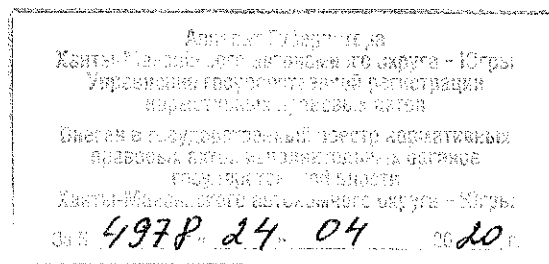 Аппарат Губернатора
Ханты-Мансийского автономного округа – Югры
Управление государственной регистрации
нормативных правовых актов
Внесен в государственный реестр нормативных
правовых актов исполнительных органов
государственной власти
Ханты-Мансийского автономного округа – Югры
За № 4978 « 24 » 04 2020 г.